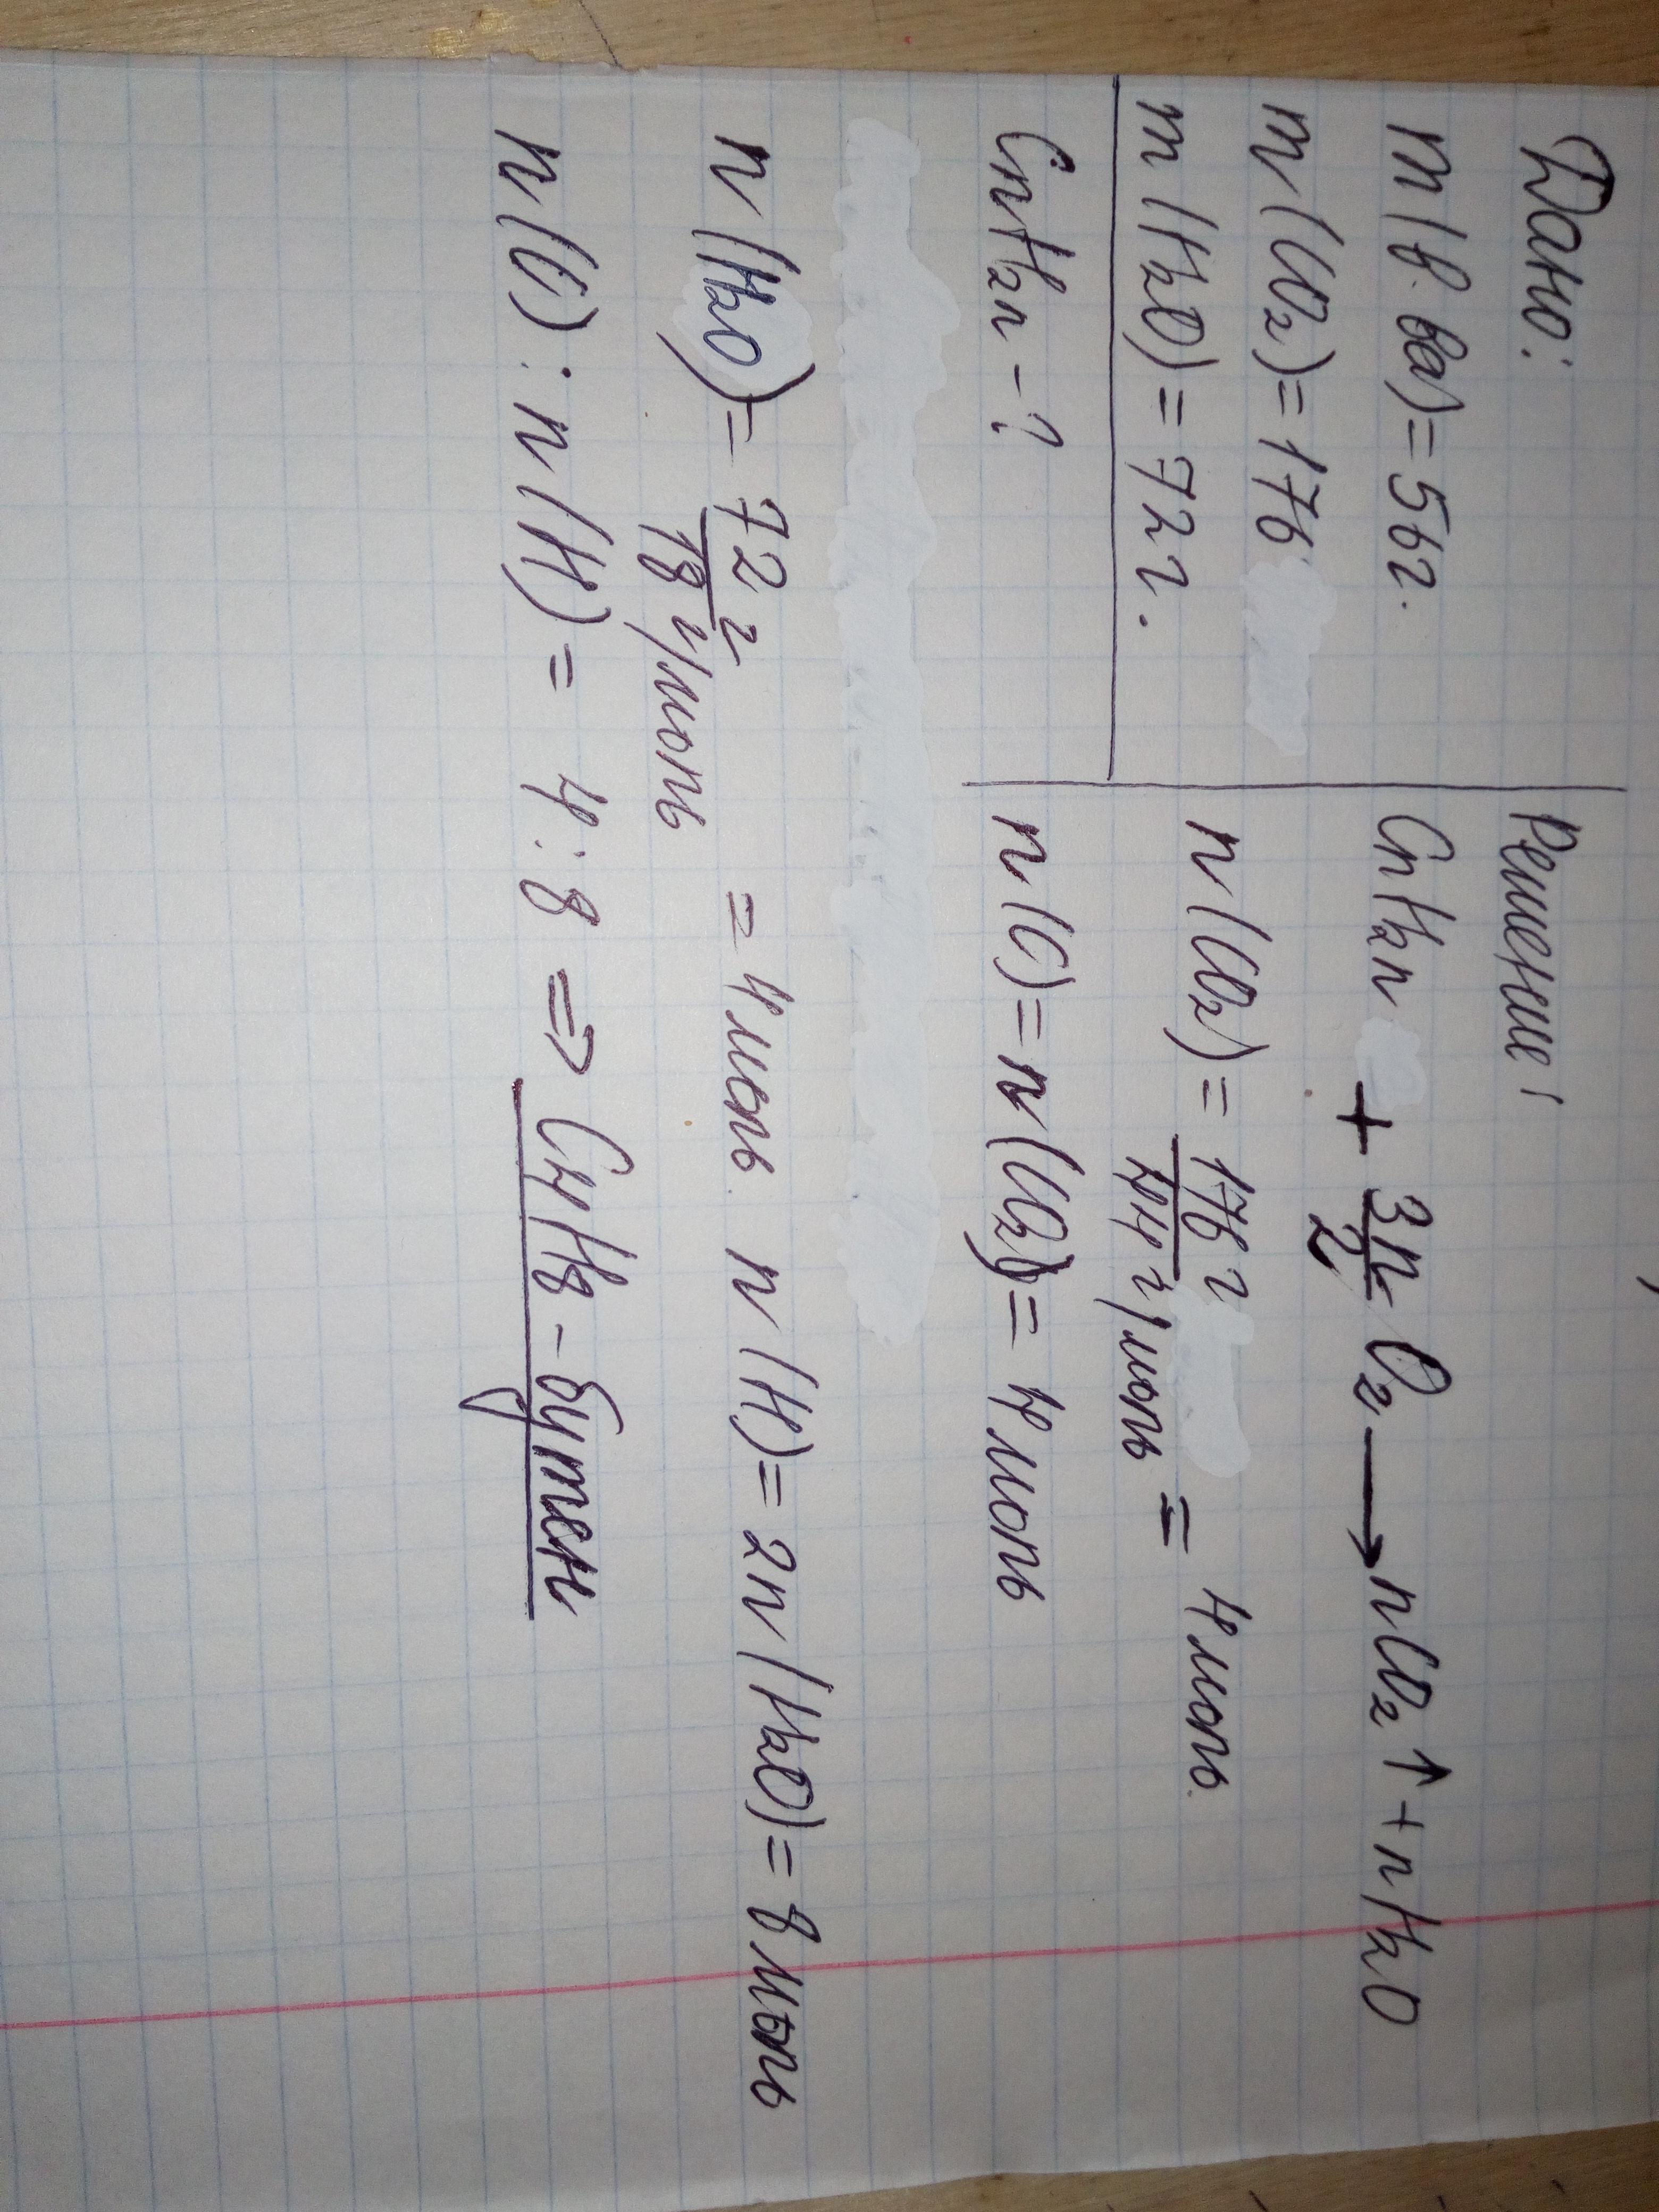 Дано:
m(в-ва)=56г.
m(CO₂)=176
m(H₂O)=72г.
CnH₂n-?
Решение:
CnH₂n + 3n/2 O₂ → nCO₂↑ + nH₂O
n(CO₂)= 176 г / 44 г/моль = 4 моль.
n(C)=n(CO₂)= 4 моль
n(H₂O)= 72 г / 18 г/моль = 4 моль. n(H)=2n(H₂O)=8 моль
n(C):n(H)= 4:8 ⇒ C₄H₈-бутен